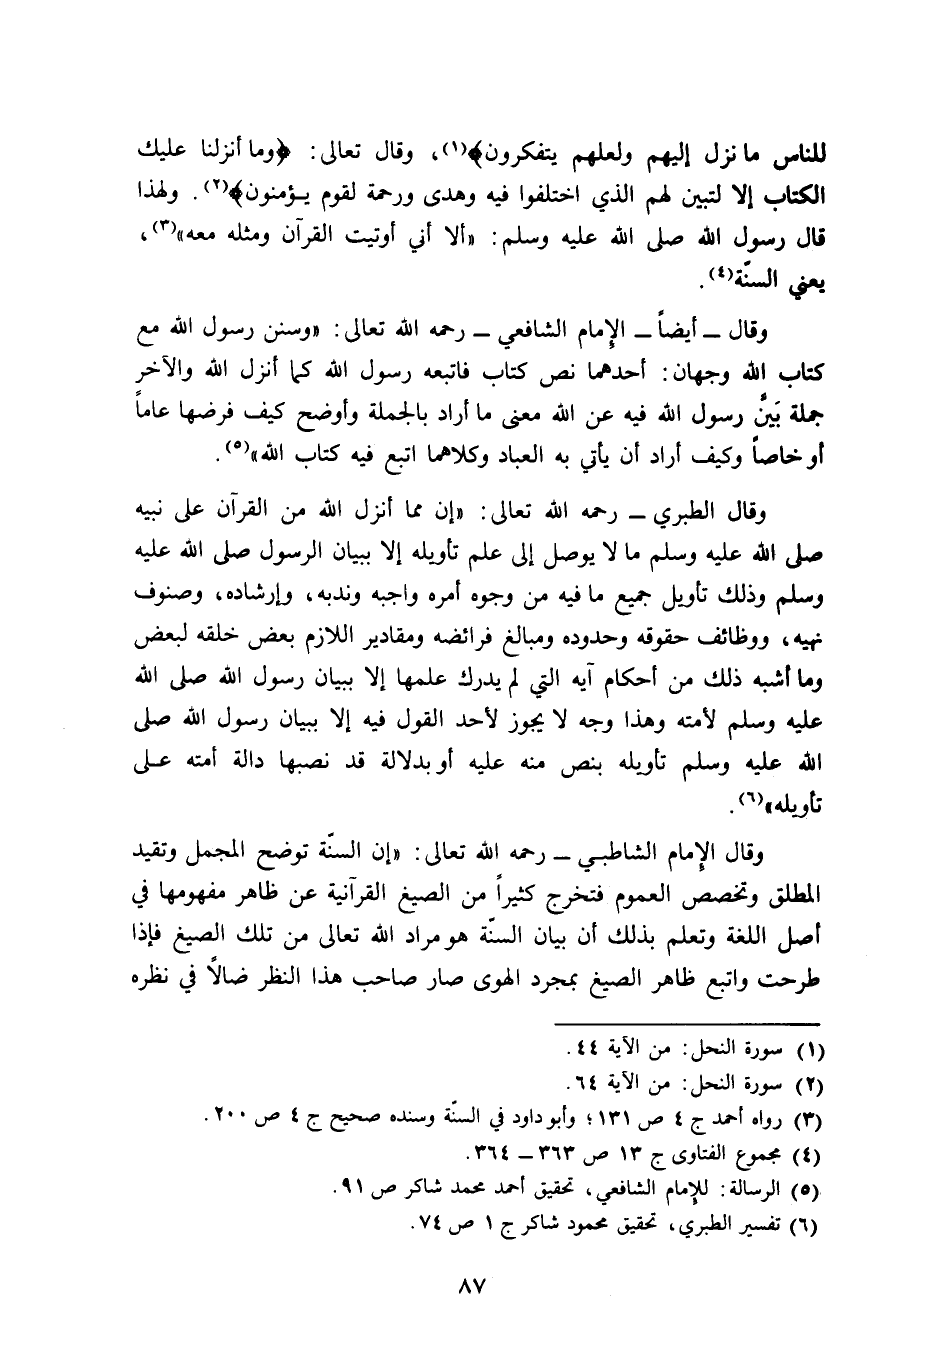 للناس ما نزل إليهم ولعلهم يتفكرون﴾(١)، وقال تعالى: ﴿وما أنزلنا عليك
الكتاب إلا لتبين لهم الذي اختلفوا فيه وهدى ورحمة لقوم يـؤمنون﴾(٢). ولهذا
قال رسول الله صلى الله عليه وسلم: «ألا أني أوتيت القرآن ومثله معه»(٣)،
يعني السنّة(٤).
وقال ــ أيضاً ــ الإمام الشافعي ــ رحمه الله تعالى: «وسنن رسول الله مع
كتاب الله وجهان: أحدهما نص كتاب فاتبعه رسول الله كما أنزل الله والآخر
جملة بَيَّن رسول الله فيه عن الله معنى ما أراد بالجملة وأوضح كيف فرضها عاماً
أو خاصاً وكيف أراد أن يأتي به العباد وكلاهما اتبع فيه كتاب الله»(٥).
وقال الطبري ــ رحمه الله تعالى: «إن مما أنزل الله من القرآن على نبيه
صلى الله عليه وسلم ما لا يوصل إلى علم تأويله إلا ببيان الرسول صلى الله عليه
وسلم وذلك تأويل جميع ما فيه من وجوه أمره واجبه وندبه، وإرشاده، وصنوف
نهيه، ووظائف حقوقه وحدوده ومبالغ فرائضه ومقادير اللازم بعض خلقه لبعض
وما أشبه ذلك من أحكام آيه التي لم يدرك علمها إلا ببيان رسول الله صلى الله
عليه وسلم لأمته وهذا وجه لا يجوز لأحد القول فيه إلا ببيان رسول الله صلى
الله عليه وسلم تأويله بنص منه عليه أو بدلالة قد نصبها دالة أمته عـلى
تأويله»(٦).
وقال الإمام الشاطبـي ــ رحمه الله تعالى: «إن السنّة توضح المجمل وتقيد
المطلق وتخصص العموم فتخرج كثيراً من الصيغ القرآنية عن ظاهر مفهومها في
أصل اللغة وتعلم بذلك أن بيان السنّة هو مراد الله تعالى من تلك الصيغ فإذا
طرحت واتبع ظاهر الصيغ بمجرد الهوى صار صاحب هذا النظر ضالاً في نظره
(١) سورة النحل: من الآية ٤٤.
(٢) سورة النحل: من الآية ٦٤.
(٣) رواه أحمد ج ٤ ص ١٣١؛ وأبو داود في السنّة وسنده صحيح ج ٤ ص ٢٠٠.
(٤) مجموع الفتاوى ج ١٣ ص ٣٦٣ ــ ٣٦٤.
(٥) الرسالة: للإمام الشافعي، تحقيق أحمد محمد شاكر ص ٩١.
(٦) تفسير الطبري، تحقيق محمود شاكر ج ١ ص ٧٤.
٨٧